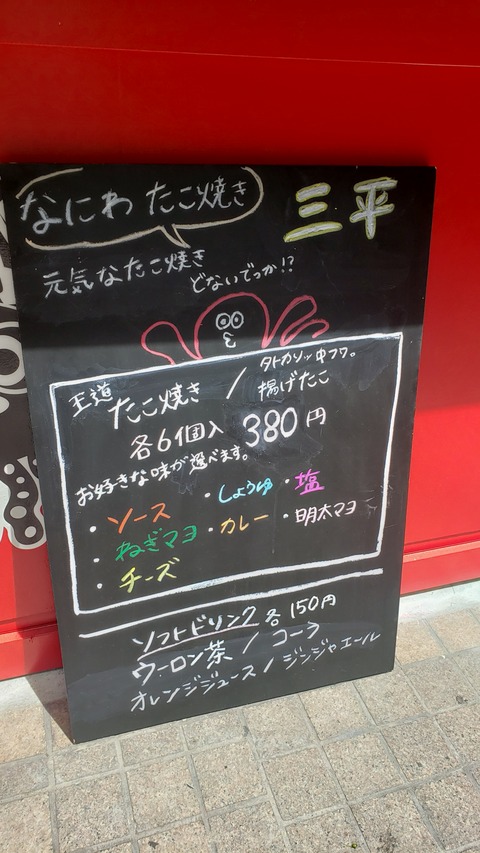 なにわ たこ焼き
三平
元気なたこ焼き
どないでっか!?
王道 たこ焼き / 外カリッ中フワ。揚げたこ
各6個入 380円
お好きな味が選べます。
・ソース ・しょうゆ ・塩
・ねぎマヨ ・カレー ・明太マヨ
・チーズ
ソフトドリンク 各150円
ウーロン茶 / コーラ
オレンジジュース / ジンジャエール